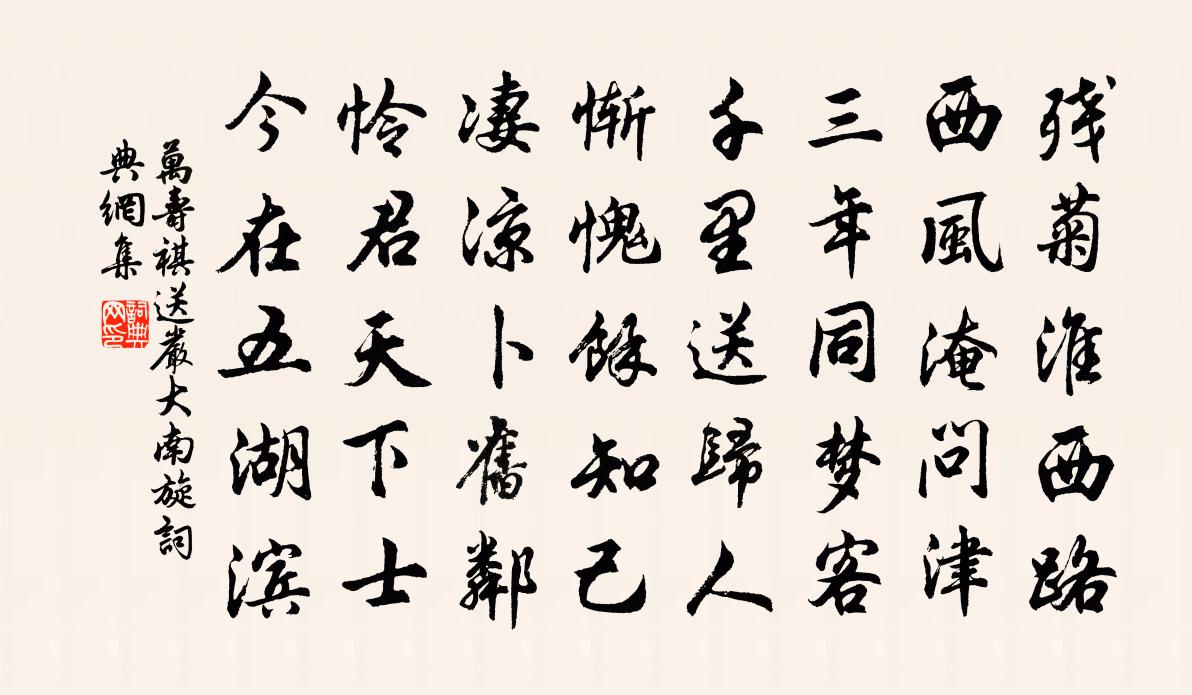 残菊淮西路
西風淹问津
三年同梦客
千里送歸人
惭愧餘知己
凄凉卜舊鄰
怜君天下士
今在五湖滨
萬壽祺送嚴大南旋詞
典網集
詞典
网印